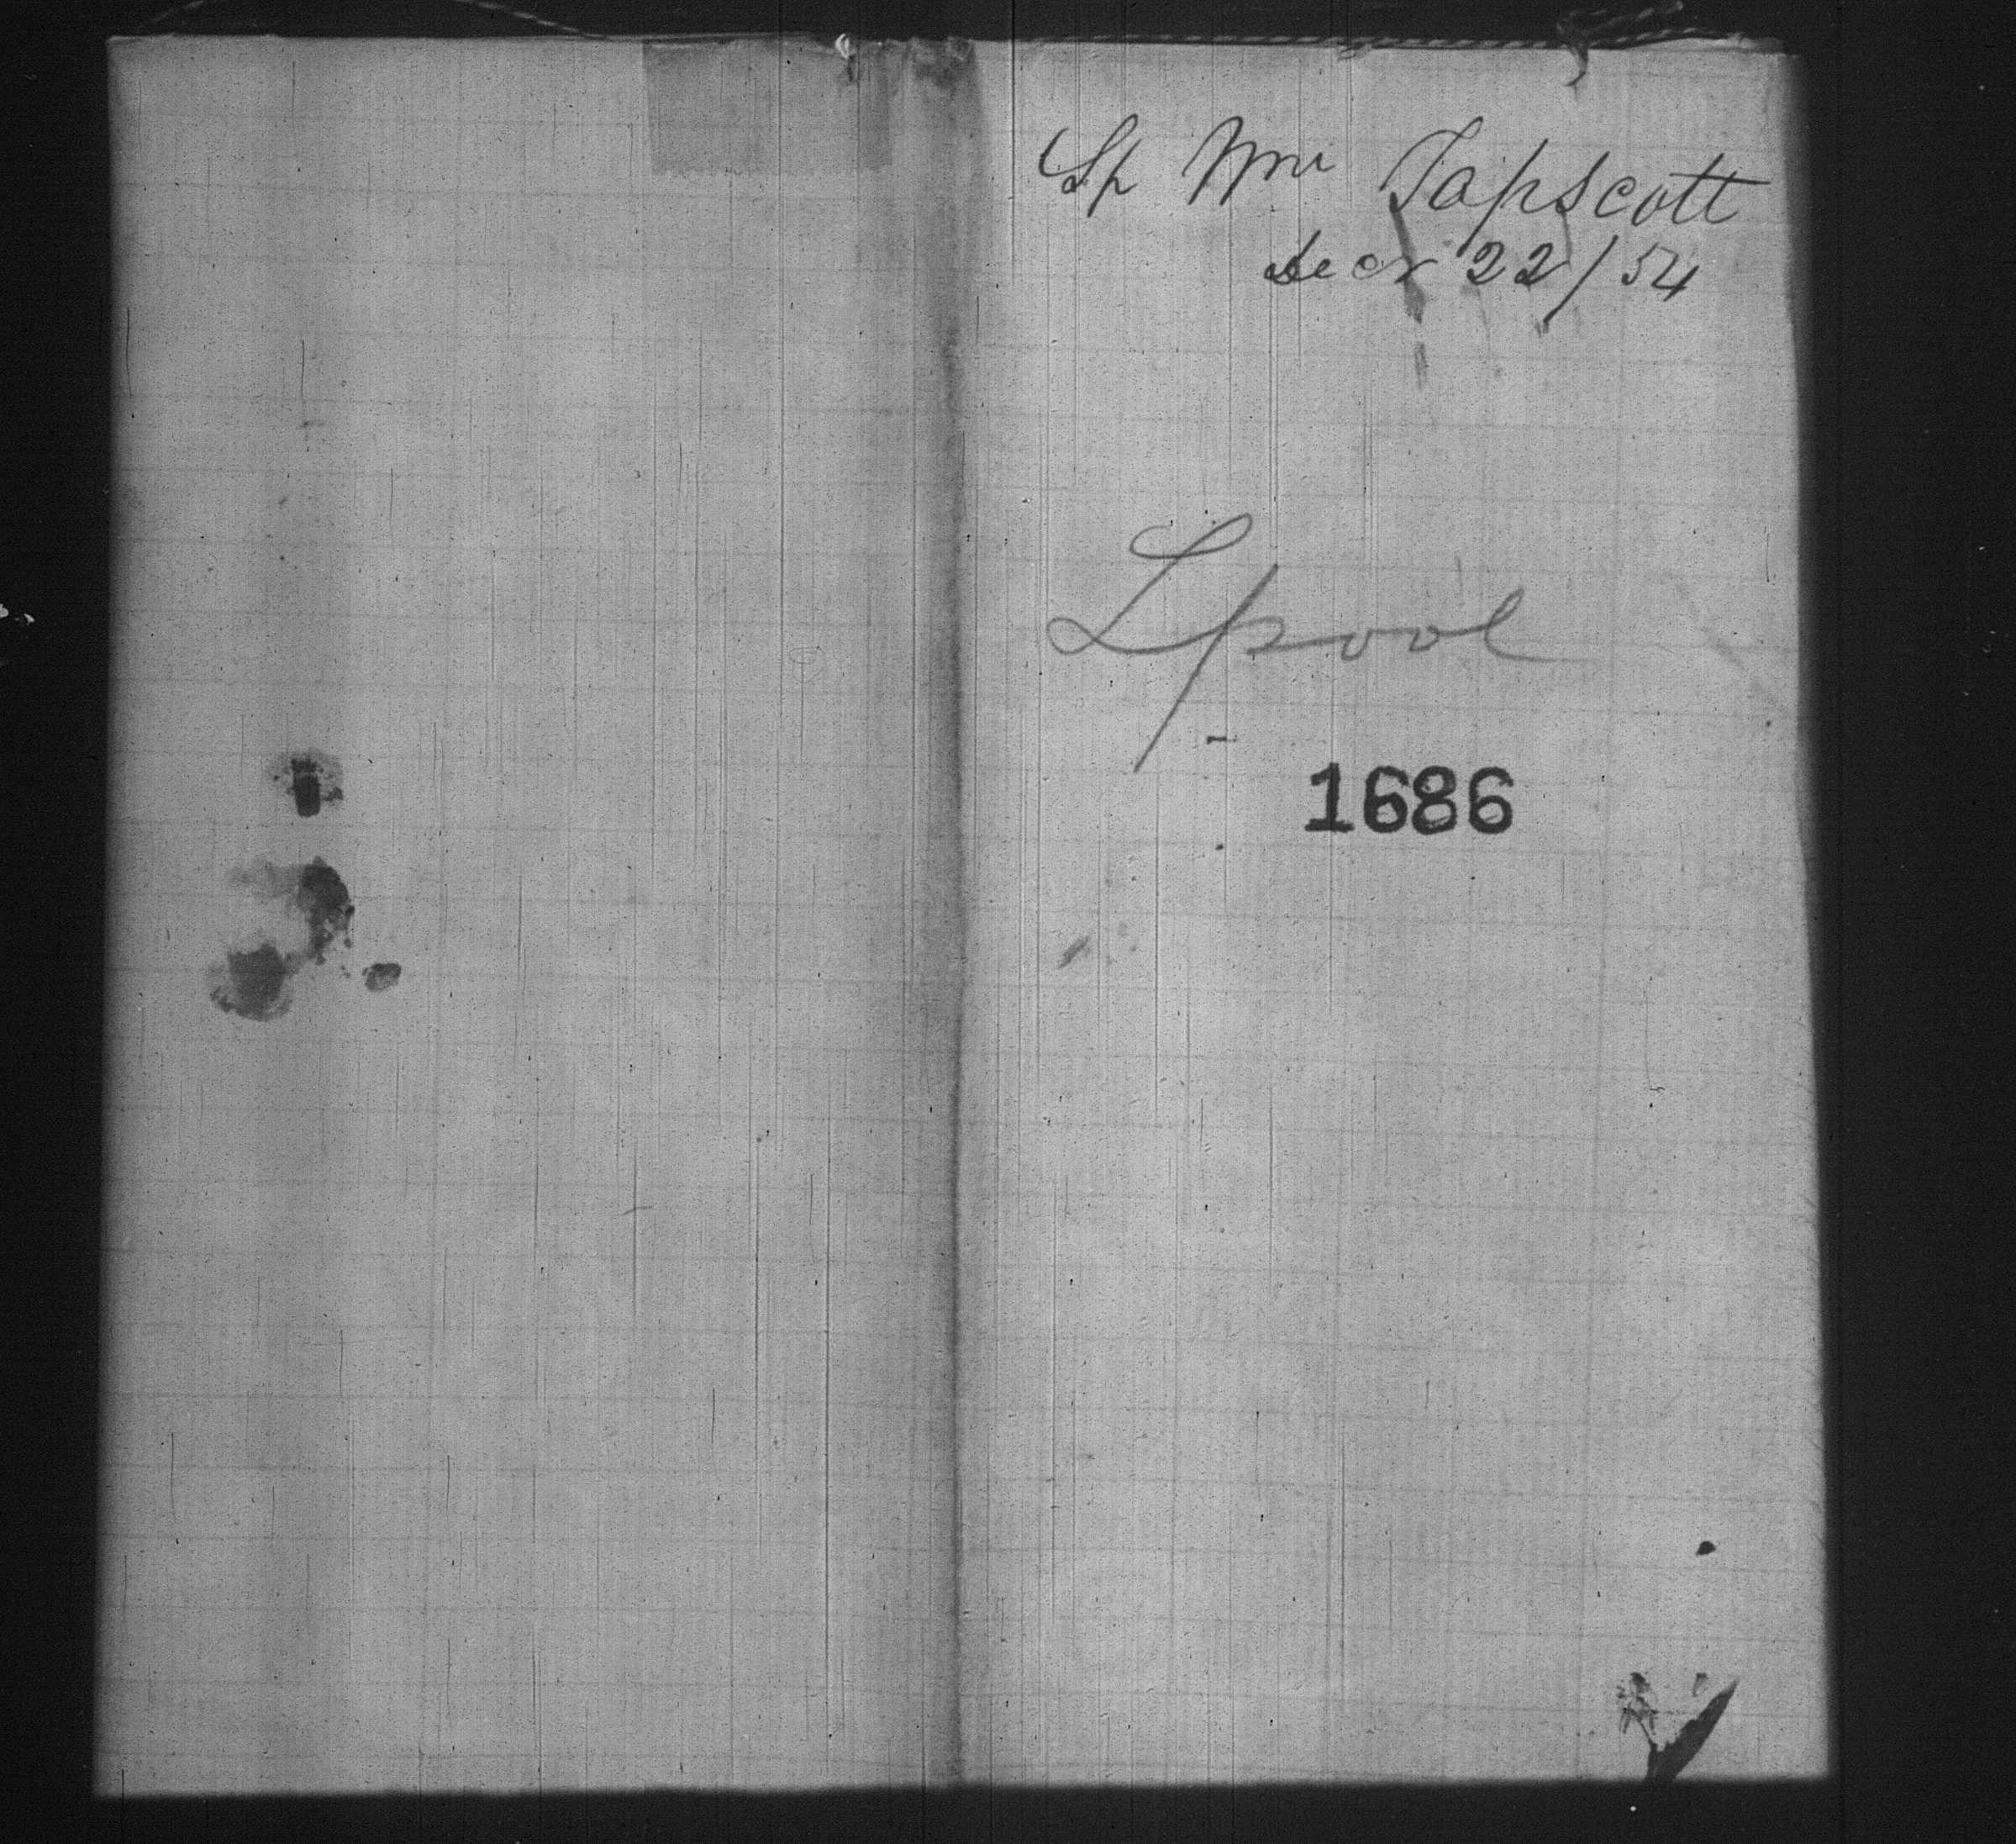 Sp Wm Tapscott
Decr 22/54
Lpool
1686